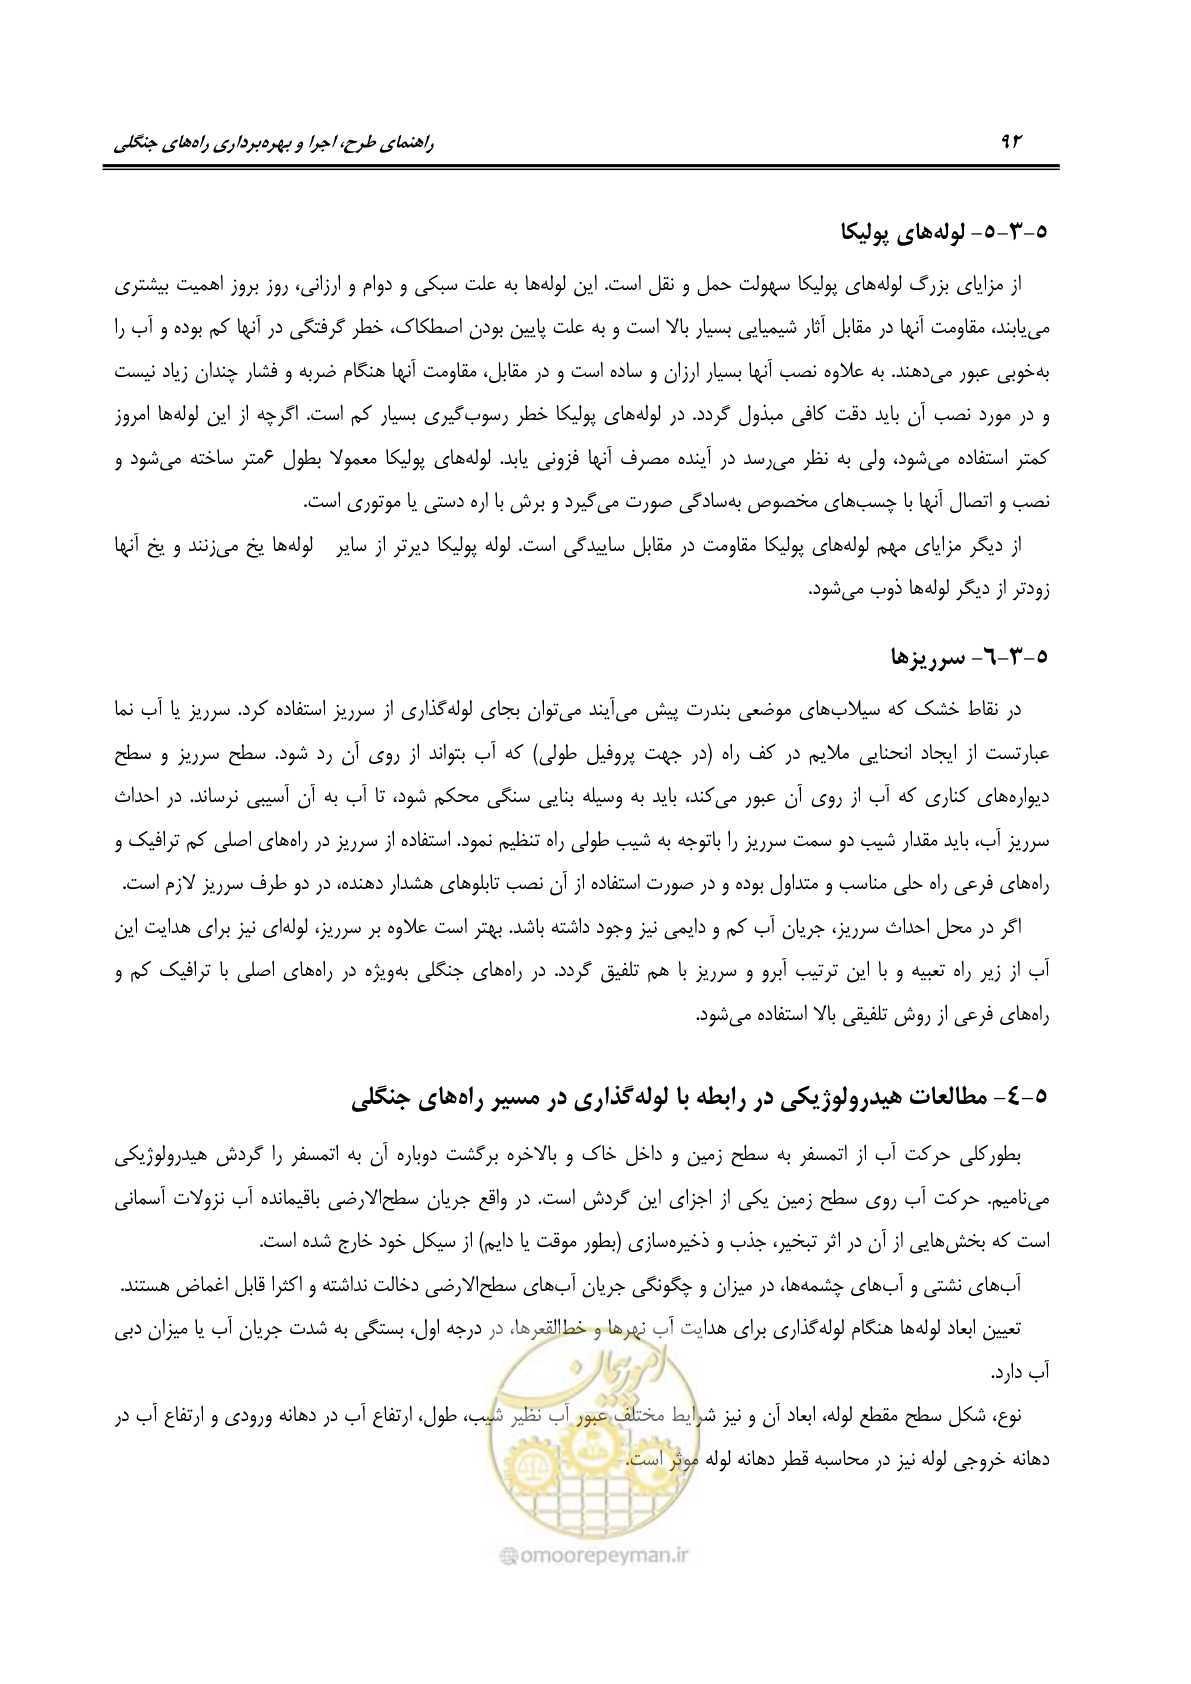 ۹۲
راهنمای طرح، اجرا و بهره‌برداری راه‌های جنگلی
۵-۳-۵- لوله‌های پولیکا
از مزایای بزرگ لوله‌های پولیکا سهولت حمل و نقل است. این لوله‌ها به علت سبکی و دوام و ارزانی، روز بروز اهمیت بیشتری
می‌یابند، مقاومت آنها در مقابل آثار شیمیایی بسیار بالا است و به علت پایین بودن اصطکاک، خطر گرفتگی در آنها کم بوده و آب را
به‌خوبی عبور می‌دهند. به علاوه نصب آنها بسیار ارزان و ساده است و در مقابل، مقاومت آنها هنگام ضربه و فشار چندان زیاد نیست
و در مورد نصب آن باید دقت کافی مبذول گردد. در لوله‌های پولیکا خطر رسوب‌گیری بسیار کم است. اگرچه از این لوله‌ها امروز
کمتر استفاده می‌شود، ولی به نظر می‌رسد در آینده مصرف آنها فزونی یابد. لوله‌های پولیکا معمولا بطول ۶متر ساخته می‌شود و
نصب و اتصال آنها با چسب‌های مخصوص به‌سادگی صورت می‌گیرد و برش با اره دستی یا موتوری است.
از دیگر مزایای مهم لوله‌های پولیکا مقاومت در مقابل ساییدگی است. لوله پولیکا دیرتر از سایر لوله‌ها یخ می‌زنند و یخ آنها
زودتر از دیگر لوله‌ها ذوب می‌شود.
۵-۳-۶- سرریزها
در نقاط خشک که سیلاب‌های موضعی بندرت پیش می‌آیند می‌توان بجای لوله‌گذاری از سرریز استفاده کرد. سرریز یا آب نما
عبارتست از ایجاد انحنایی ملایم در کف راه (در جهت پروفیل طولی) که آب بتواند از روی آن رد شود. سطح سرریز و سطح
دیواره‌های کناری که آب از روی آن عبور می‌کند، باید به وسیله بنایی سنگی محکم شود، تا آب به آن آسیبی نرساند. در احداث
سرریز آب، باید مقدار شیب دو سمت سرریز را باتوجه به شیب طولی راه تنظیم نمود. استفاده از سرریز در راه‌های اصلی کم ترافیک و
راه‌های فرعی راه حلی مناسب و متداول بوده و در صورت استفاده از آن نصب تابلوهای هشدار دهنده، در دو طرف سرریز لازم است.
اگر در محل احداث سرریز، جریان آب کم و دایمی نیز وجود داشته باشد. بهتر است علاوه بر سرریز، لوله‌ای نیز برای هدایت این
آب از زیر راه تعبیه و با این ترتیب آبرو و سرریز با هم تلفیق گردد. در راه‌های جنگلی به‌ویژه در راه‌های اصلی با ترافیک کم و
راه‌های فرعی از روش تلفیقی بالا استفاده می‌شود.
۵-۴- مطالعات هیدرولوژیکی در رابطه با لوله‌گذاری در مسیر راه‌های جنگلی
بطورکلی حرکت آب از اتمسفر به سطح زمین و داخل خاک و بالاخره برگشت دوباره آن به اتمسفر را گردش هیدرولوژیکی
می‌نامیم. حرکت آب روی سطح زمین یکی از اجزای این گردش است. در واقع جریان سطح‌الارضی باقیمانده آب نزولات آسمانی
است که بخش‌هایی از آن در اثر تبخیر، جذب و ذخیره‌سازی (بطور موقت یا دایم) از سیکل خود خارج شده است.
آب‌های نشتی و آب‌های چشمه‌ها، در میزان و چگونگی جریان آب‌های سطح‌الارضی دخالت نداشته و اکثرا قابل اغماض هستند.
تعیین ابعاد لوله‌ها هنگام لوله‌گذاری برای هدایت آب نهرها و خط‌القعرها، در درجه اول، بستگی به شدت جریان آب یا میزان دبی
آب دارد.
نوع، شکل سطح مقطع لوله، ابعاد آن و نیز شرایط مختلف عبور آب نظیر شیب، طول، ارتفاع آب در دهانه ورودی و ارتفاع آب در
دهانه خروجی لوله نیز در محاسبه قطر دهانه لوله موثر است.
امور پیمان
@omoorepeyman.ir